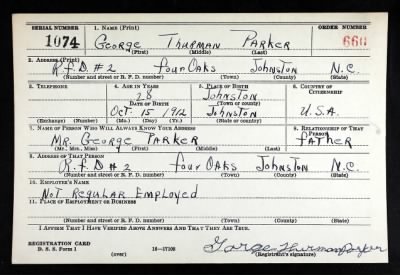 SERIAL NUMBER 1. NAME (Print) ORDER NUMBER
1074 George Thurman Parker 660
(First) (Middle) (Last)
2. ADDRESS (Print)
R.F.D #2 Four Oaks Johnston N.C.
(Number and street or R. F. D. number) (Town) (County) (State)
3. TELEPHONE 4. AGE IN YEARS 5. PLACE OF BIRTH 6. COUNTRY OF CITIZENSHIP
28 Johnston
DATE OF BIRTH (Town or county)
Oct. 15 1912 Johnston U.S.A.
(Exchange) (Number) (Mo.) (Day) (Yr.) (State or country)
7. NAME OF PERSON WHO WILL ALWAYS KNOW YOUR ADDRESS 8. RELATIONSHIP OF THAT PERSON
Mr. George Parker Father
(Mr., Mrs., Miss) (First) (Middle) (Last)
9. ADDRESS OF THAT PERSON
R.F.D #2 Four Oaks Johnston N.C.
(Number and street or R. F. D. number) (Town) (County) (State)
10. EMPLOYER'S NAME
Not Regular Employed
11. PLACE OF EMPLOYMENT OR BUSINESS
(Number and street or R. F. D. number) (Town) (County) (State)
I AFFIRM THAT I HAVE VERIFIED ABOVE ANSWERS AND THAT THEY ARE TRUE.
REGISTRATION CARD
D. S. S. Form 1 16—17105 George Thurman Parker
(over) (Registrant's signature)